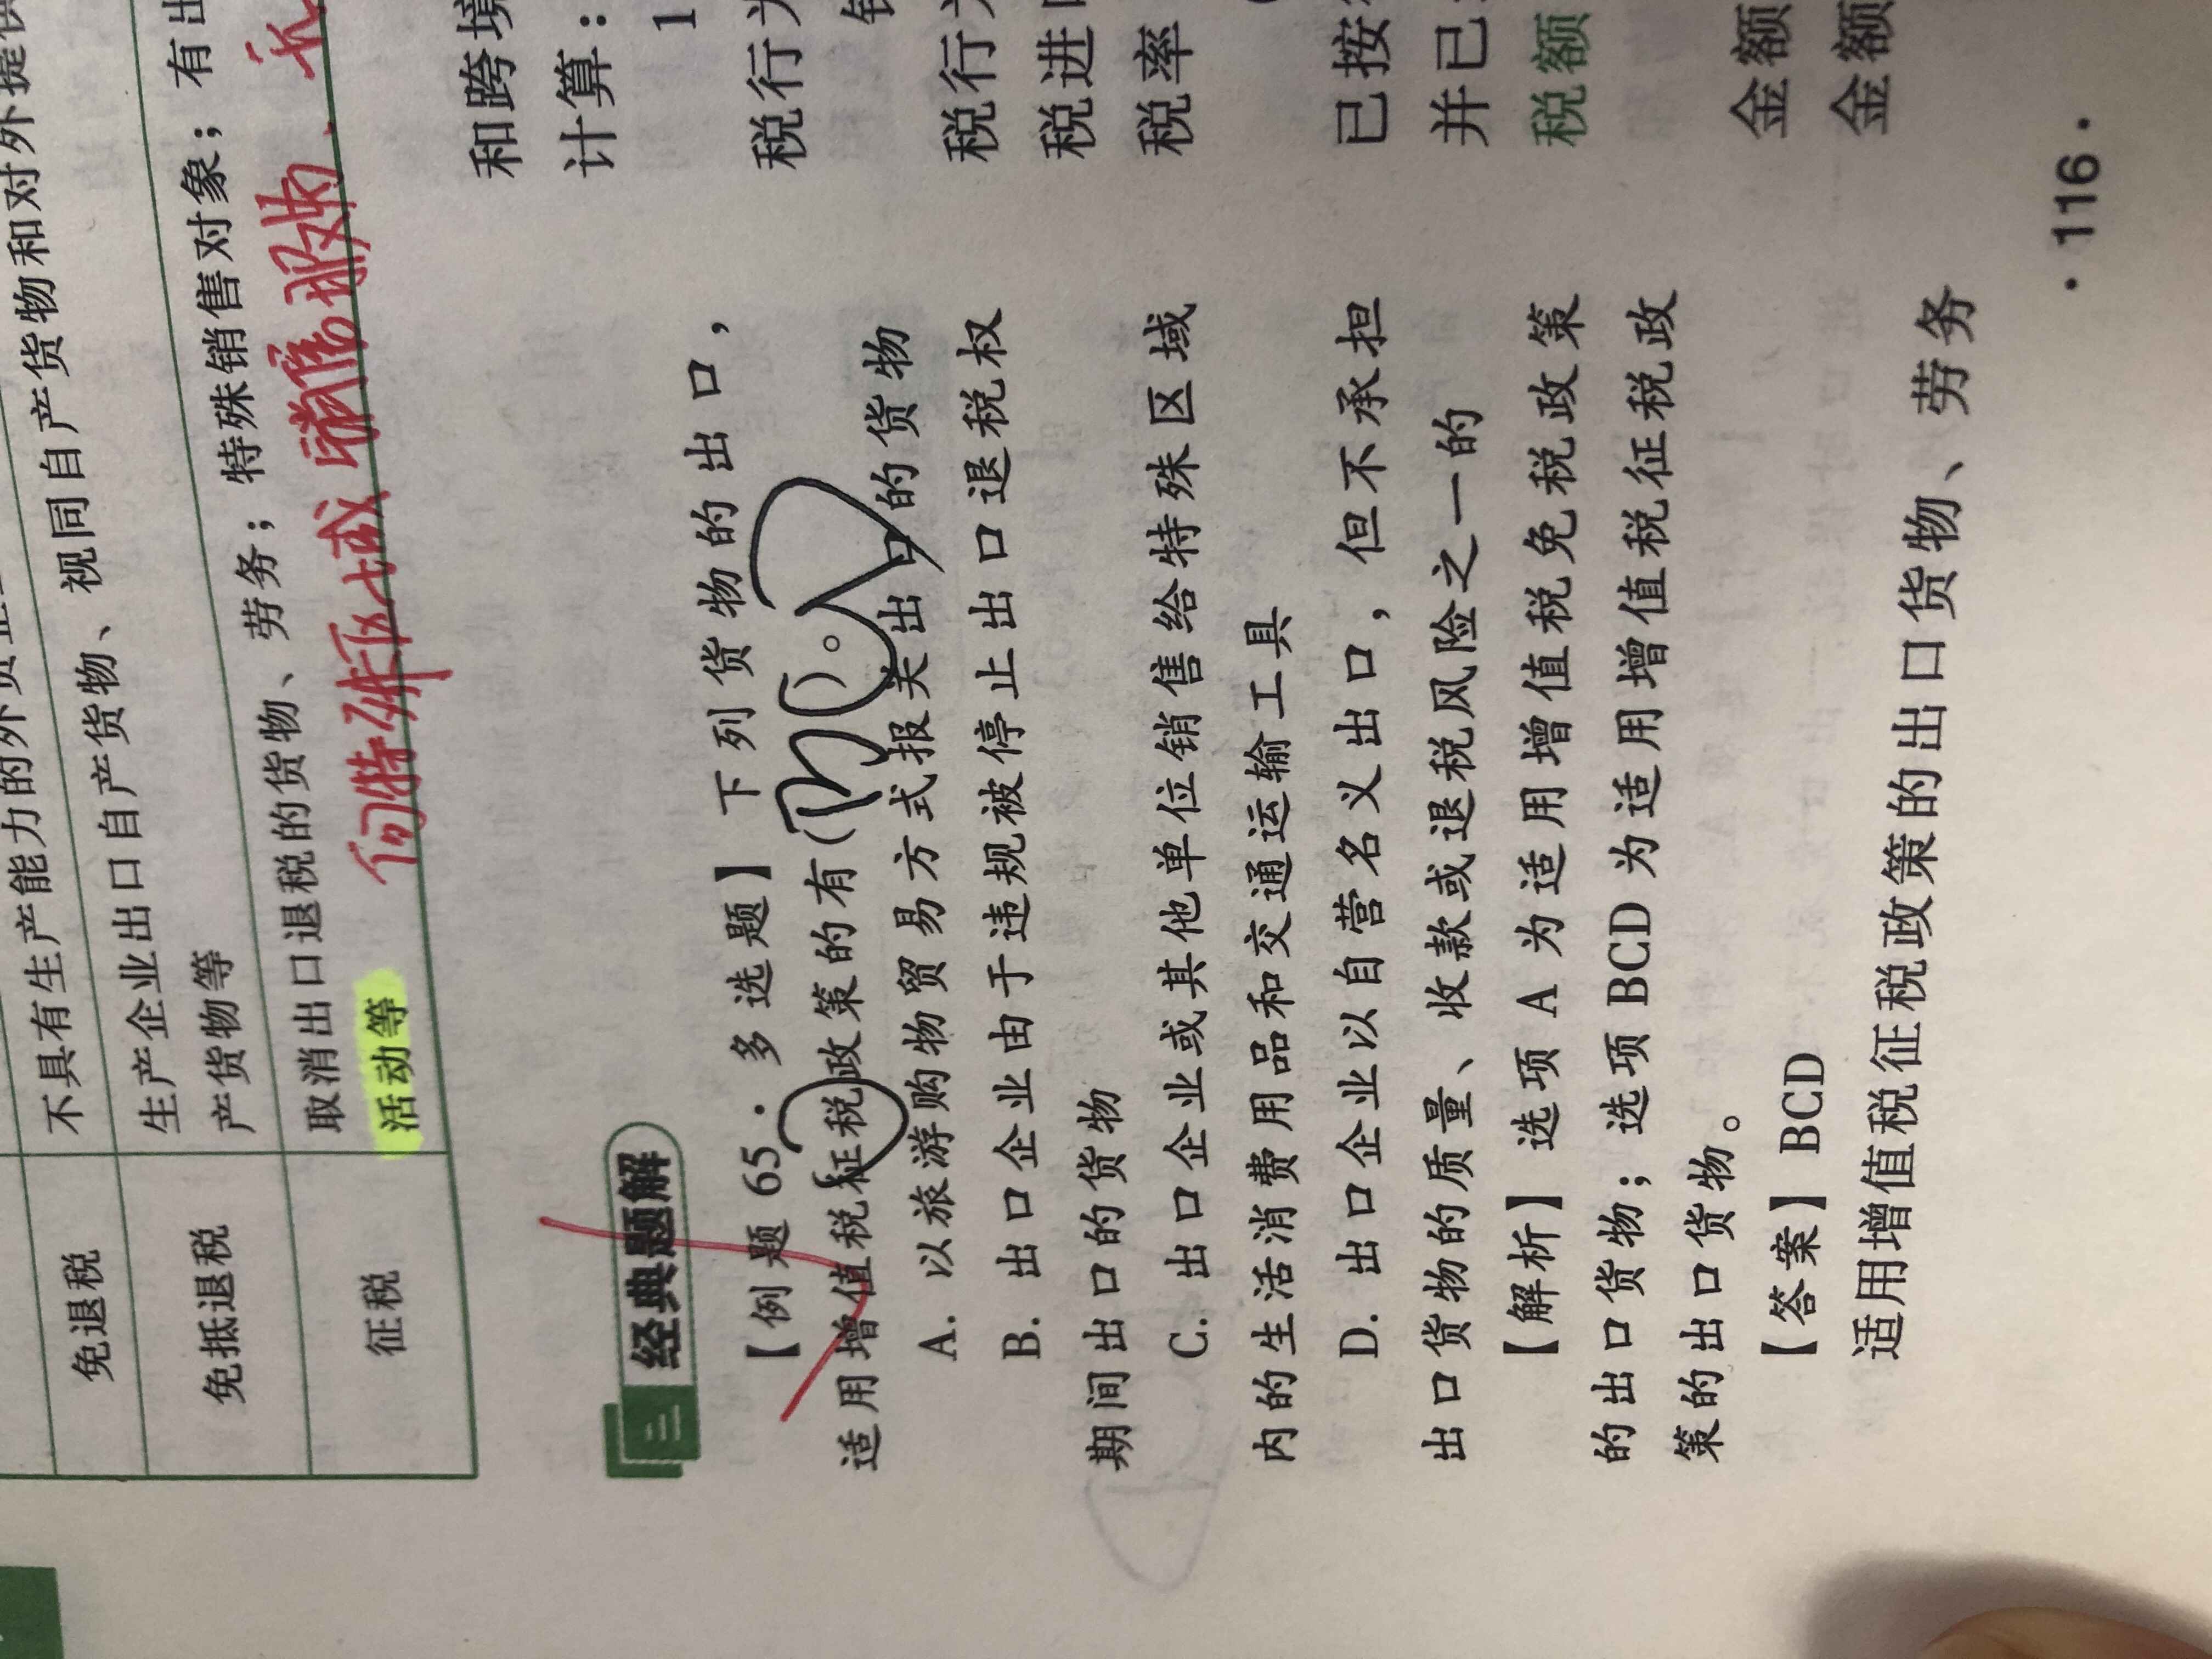 不具有生产能力的外贸企业
免退税
生产企业出口自产货物、视同自产货物和对外提供
产货物等
免抵退税
取消出口退税的货物、劳务；特殊销售对象；有出
活动等
征税
向特殊区域销售服购
三 经典题解
【例题 65·多选题】下列货物的出口，
适用增值税征税政策的有（ ）。
A. 以旅游购物贸易方式报关出口的货物
B. 出口企业由于违规被停止出口退税权
期间出口的货物
C. 出口企业或其他单位销售给特殊区域
内的生活消费用品和交通运输工具
D. 出口企业以自营名义出口，但不承担
出口货物的质量、收款或退税风险之一的
【解析】选项 A 为适用增值税免税政策
的出口货物；选项 BCD 为适用增值税征税政
策的出口货物。
【答案】BCD
适用增值税征税政策的出口货物、劳务
和跨境
计算：
1
税行为
销
税行为
税进口
税率
已按
并已
税额
金额
金额
·116·